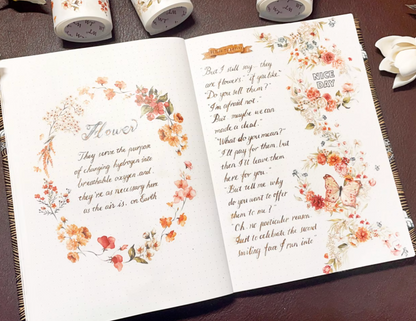 Flower
They serve the purpose
of changing hydrogen into
breathable oxygen and
they're as necessary here
as the air is, on Earth
But I still say, they
are flowers. "if you like."
"Do you sell them?"
"I'm afraid not."
"But maybe we can
made a deal."
"What do you mean?"
"I'll pay for them, but
then I'll leave them
here for you."
"But tell me why
do you want to offer
them to me?"
"Oh, no particular reason.
Just to celebrate the
smiling face I run into
NICE
DAY